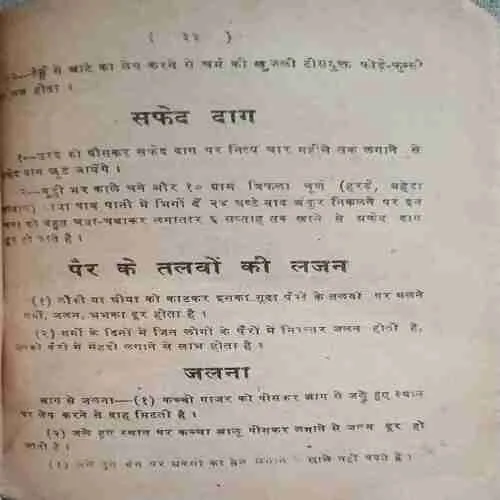 ( ३२ )
के आटे का लेप करने से चर्म की खुजली टीसयुक्त फोड़े-फुन्सी
होता ।
सफेद दाग
१—उरद को पीसकर सफेद दाग पर नित्य चार महीने तक लगाने से
दाग छूट जायेंगे ।
२—मुट्ठी भर काले चने और १० ग्राम त्रिफला चूर्ण (हरड़, बहेड़ा
पाव पानी में भिगो दें २४ घण्टे बाद अंकुर निकलने पर इन
को बहुत चबा-चबाकर लगातार ६ सप्ताह तक खाने से सफेद दाग
दूर हो जाते है ।
पैर के तलवों की लजन
(१) लौकी या घीया को काटकर इसका गूदा पैरों के तलवों पर मलने
गर्मी, जलन, भभका दूर होता है ।
(२) गर्मी के दिनों में जिन लोगों के पैरों में निरन्तर जलन होती है,
पैरों में मेंहदी लगाने से लाभ होता है ।
जलना
आग से जलना—(१) कच्ची गाजर को पीसकर आग से जले हुए स्थान
पर लेप करने से दाह मिटती है ।
(२) जले हुए स्थान पर कच्चा आलू पीसकर लगाने से जलन दूर हो
जाती है ।
(३) जले हुए पर का लेप